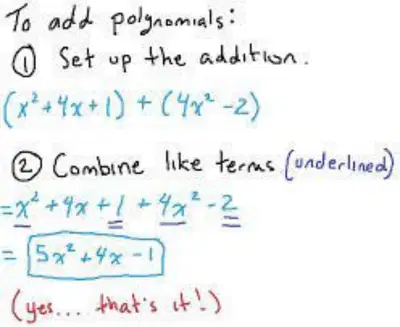 To add polynomials:
① Set up the addition.
(x² + 4x + 1) + (4x² - 2)
② Combine like terms (underlined)
= x² + 4x + 1 + 4x² - 2
= 5x² + 4x - 1
(yes... that's it!)